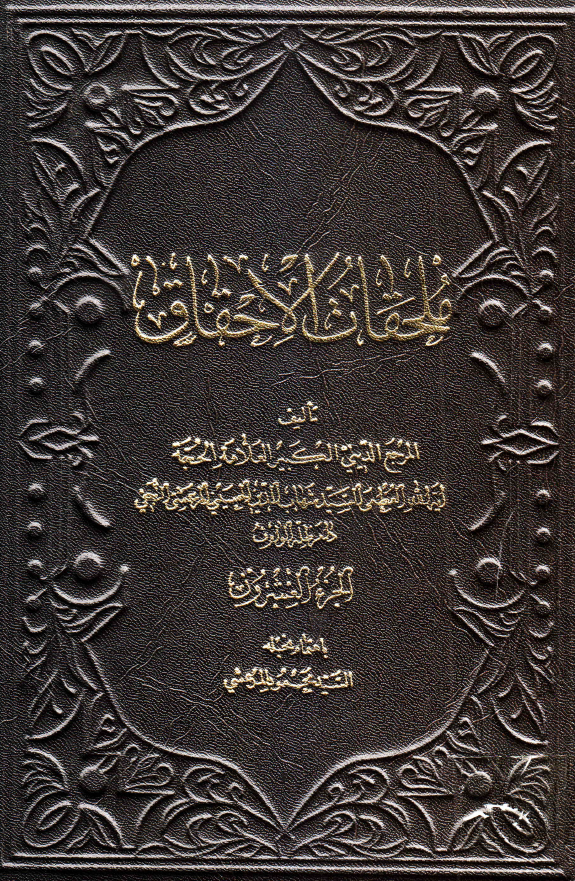 مُلحَقَاتُ الْإِحْقَاقِ
تأليف
المرجع الديني الكبير العلامة الحجة
آية الله العظمى السيد شهاب الدين الحسيني المرعشي النجفي
دام ظله الوارف
الجزء العشرون
باهتمام نجله
السيد محمود المرعشي